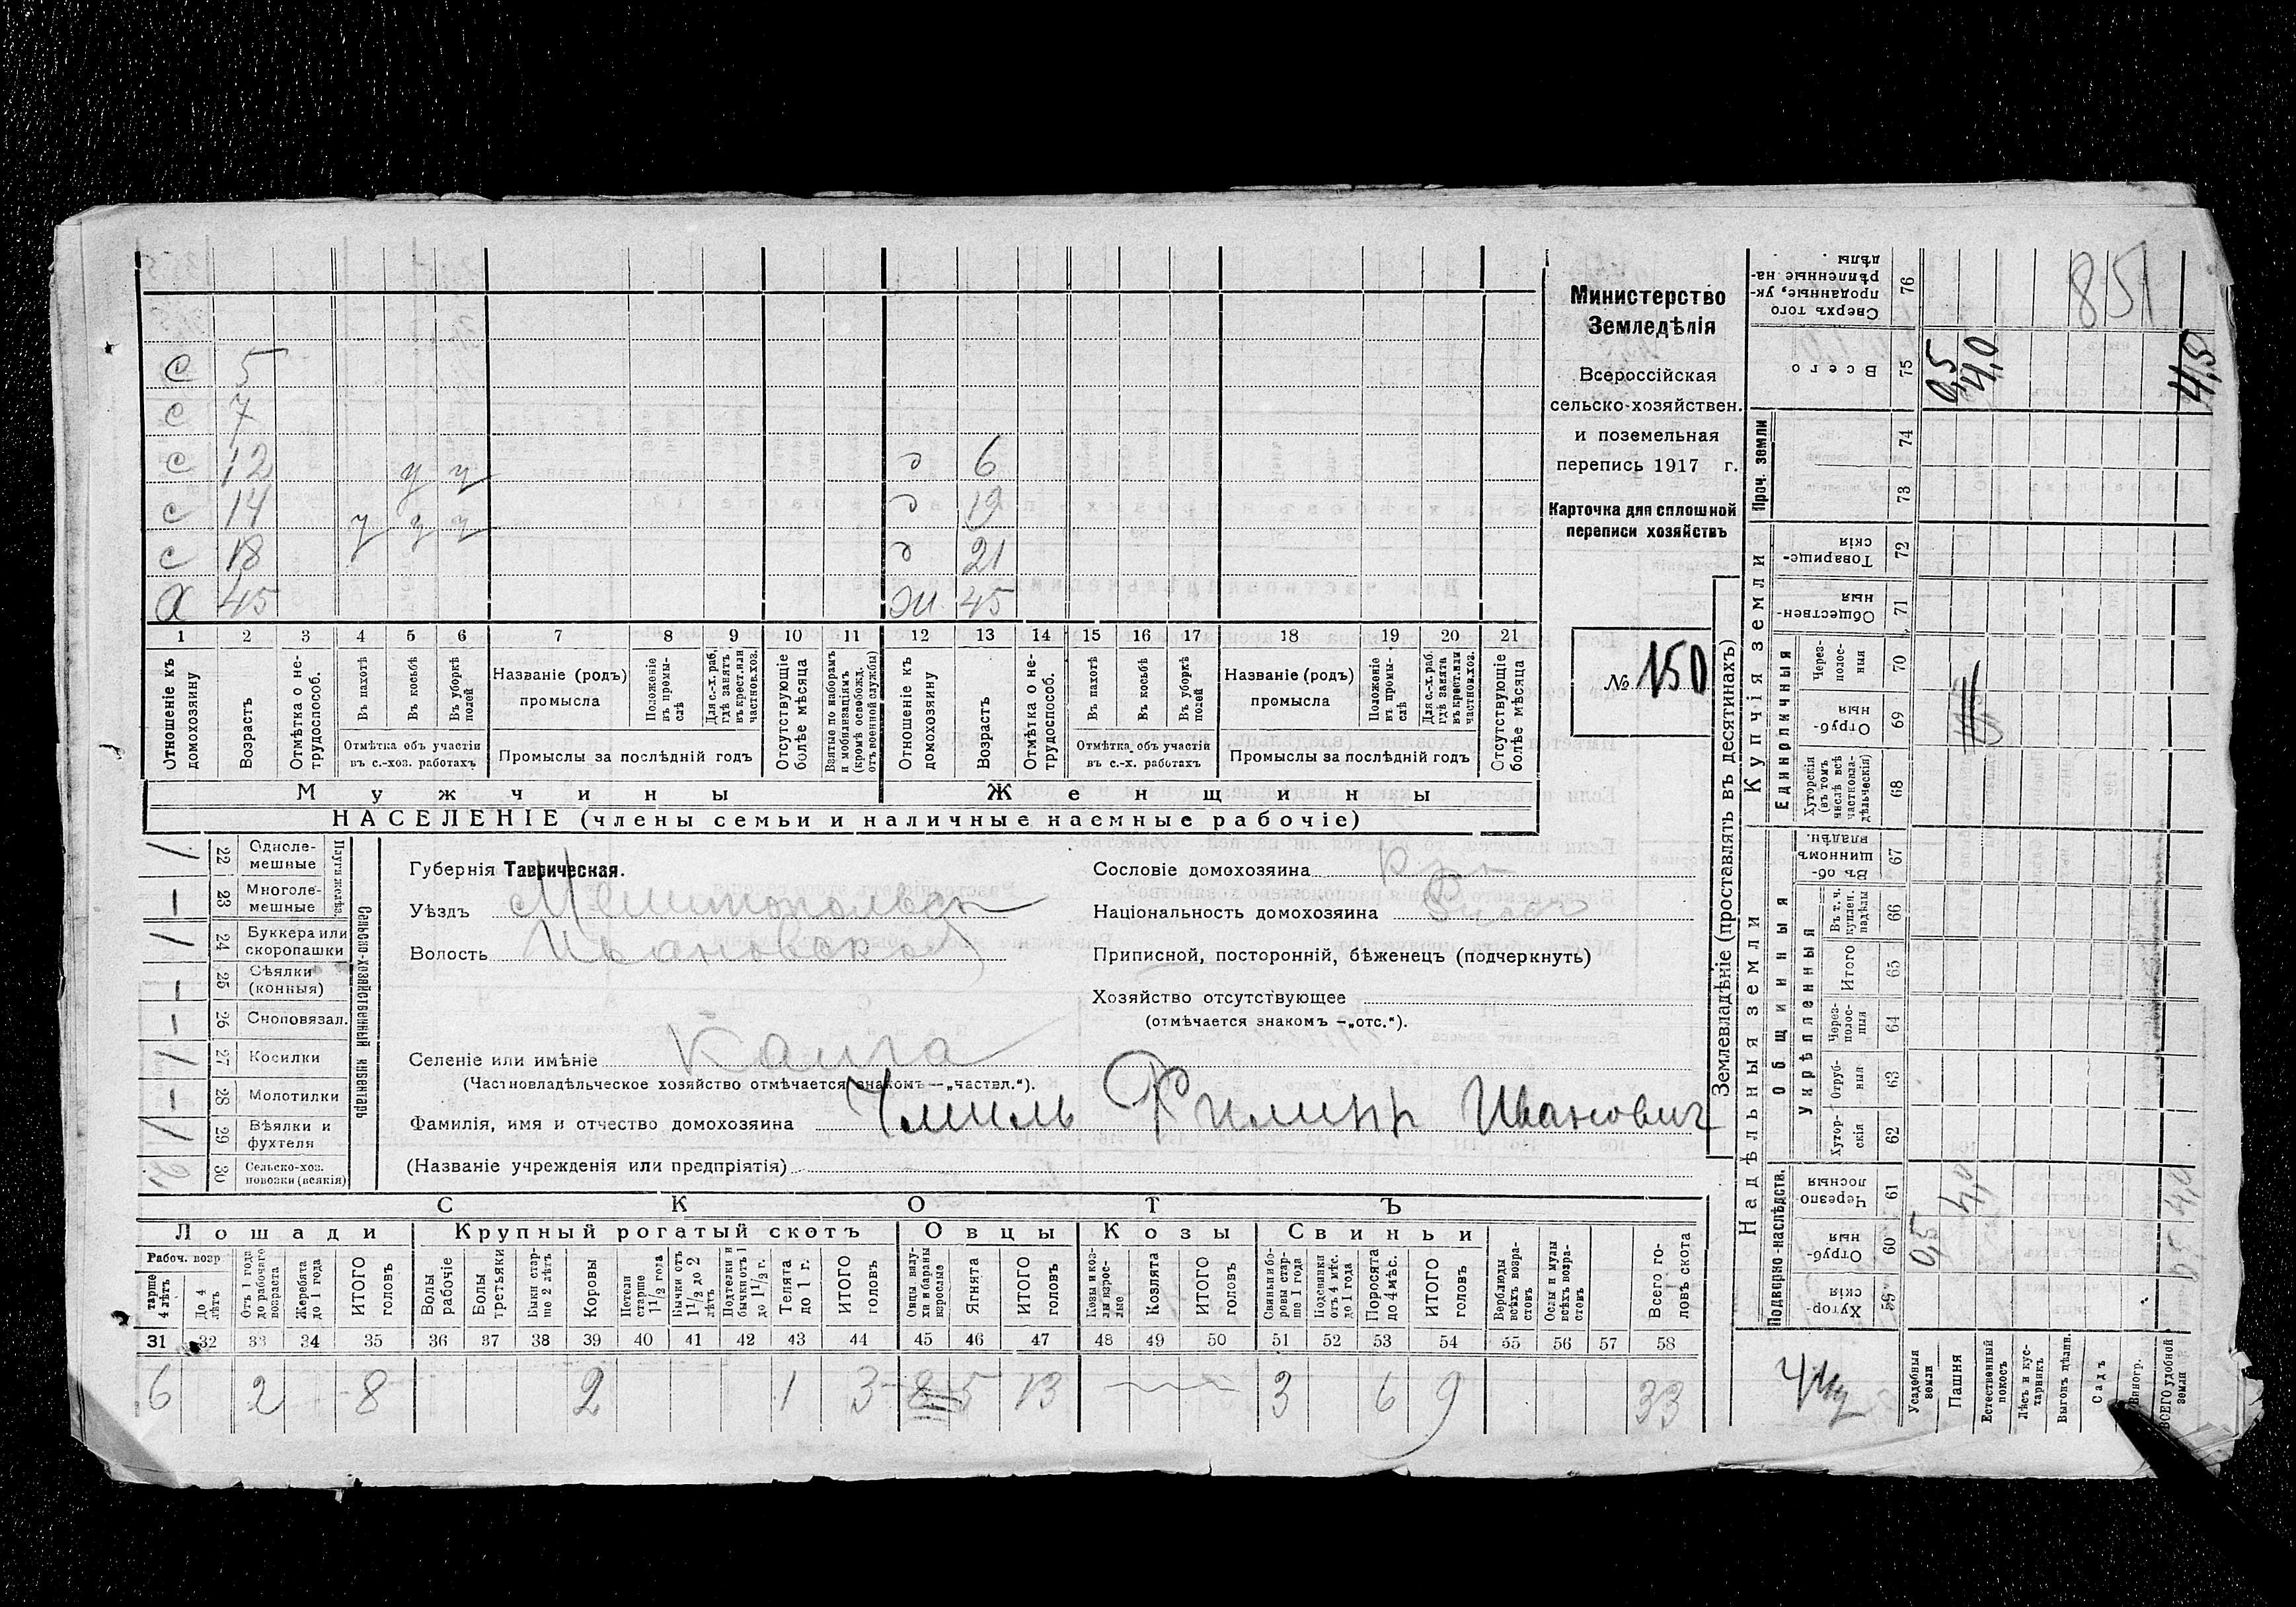 с 5
с 7
с 12 у у
д 6
с 14 у у у
д 19
с 18
д 21
Х 45
Ж. 45
1 2 3 4 5 6 7 8 9 10 11 12 13 14 15 16 17 18 19 20 21
Отношеніе къ домохозяину
Возрастъ
Отмѣтка о нетрудоспособ.
Въ пахотѣ
Въ косьбѣ
Въ уборкѣ полей
Отмѣтка объ участіи въ с.-хоз. работахъ
Названіе (родъ) промысла
Положеніе въ промыслѣ
Для с.-х. раб. гдѣ занятъ въ крест. или частнов. хоз.
Промыслы за послѣдній годъ
Отсутствующіе болѣе мѣсяца
Взятые по наборамъ и мобилизаціямъ (кромѣ освобожд. отъ военной службы)
Отношеніе къ домохозяину
Возрастъ
Отмѣтка о нетрудоспособ.
Въ пахотѣ
Въ косьбѣ
Въ уборкѣ полей
Отмѣтка объ участіи въ с.-х. работахъ
Названіе (родъ) промысла
Положеніе въ промыслѣ
Для с.-х. раб. гдѣ занята въ крест. или частнов. хоз.
Промыслы за послѣдній годъ
Отсутствующіе болѣе мѣсяца
Мужчины
Женщины
НАСЕЛЕНІЕ (члены семьи и наличные наемные рабочіе)
Министерство
Земледѣлія
Всероссійская
сельско-хозяйствен.
и поземельная
перепись 1917 г.
Карточка для сплошной
переписи хозяйствъ
№ 150
Сельско-хозяйственный инвентарь
Плуги желѣз.
22 Одноле-мешные
23 Многоле-мешные
24 Буккера или скоропашки
25 Сѣялки (конныя)
26 Сноповязал.
27 Косилки
28 Молотилки
29 Вѣялки и фухтеля
30 Сельско-хоз. повозки (всякія)
Губернія Таврическая.
Уѣздъ Мелитопольск
Волость Ивановской
Селеніе или имѣніе Каига
(Частновладѣльческое хозяйство отмѣчается знакомъ —„частвл.“).
Фамилія, имя и отчество домохозяина Чмиль Филипп Иванович
(Названіе учрежденія или предпріятія)
Сословіе домохозяина
Національность домохозяина
Приписной, посторонній, бѣженецъ (подчеркнуть)
Хозяйство отсутствующее
(отмѣчается знакомъ —„отс.“).
СКОТЪ
Лошади
Крупный рогатый скотъ
Овцы
Козы
Свиньи
Рабоч. возр
старше 4 лѣтъ
До 4 лѣтъ
Отъ 1 года до рабочаго возраста
Жеребята до 1 года
ИТОГО головъ
Волы рабочіе
Волы третьяки
Быки старше 2 лѣтъ
Коровы
Нетели старше 1 1/2 года
Бычки отъ 1 1/2 до 2 лѣтъ
Подтелки и бычки отъ 1 до 1 1/2 г.
Телята до 1 г.
ИТОГО головъ
Овцы валухи и бараны взрослые
Ягнята
ИТОГО головъ
Козы и козлы взрослые
Козлята
ИТОГО головъ
Свиньи и боровы старше 1 года
Подсвинки отъ 4 мѣс. до 1 года
Поросята до 4 мѣс.
ИТОГО головъ
Верблюды всѣхъ возрастовъ
Ослы и мулы всѣхъ возрастовъ
Всего головъ скота
31 32 33 34 35 36 37 38 39 40 41 42 43 44 45 46 47 48 49 50 51 52 53 54 55 56 57 58
6 2 8 2 1 3 8 5 13 3 6 9 33
Землевладѣніе (проставлять въ десятинахъ)
Надѣльныя земли
Купчія земли
Проч. земли
Подворно-наслѣдств.
Общинныя
Укрѣпленныя
Единличныя
Хуторскія 59
Отрубныя 60
Черезполосныя 61
Хуторскія 62
Отрубныя 63
Черезполосныя 64
Итого 65
Въ т. ч. куплен. надѣлы 66
Въ общинномъ владѣн. 67
Хуторскія (въ томъ числѣ всѣ частновладѣльческія) 68
Отрубныя 69
Черезполосныя 70
Общественныя 71
Товарищескія 72
73
74
Всего 75
Сверхъ того проданные, укрѣпленные надѣлы 76
Усадебныя земли
0,5 0,5
Пашня
4,0 4,0
Естественный покосъ
Лѣсъ и кустарникъ
Выгонъ цѣлин.
Садъ
Виногр.
ВСЕГО удобной земли
4,5
851